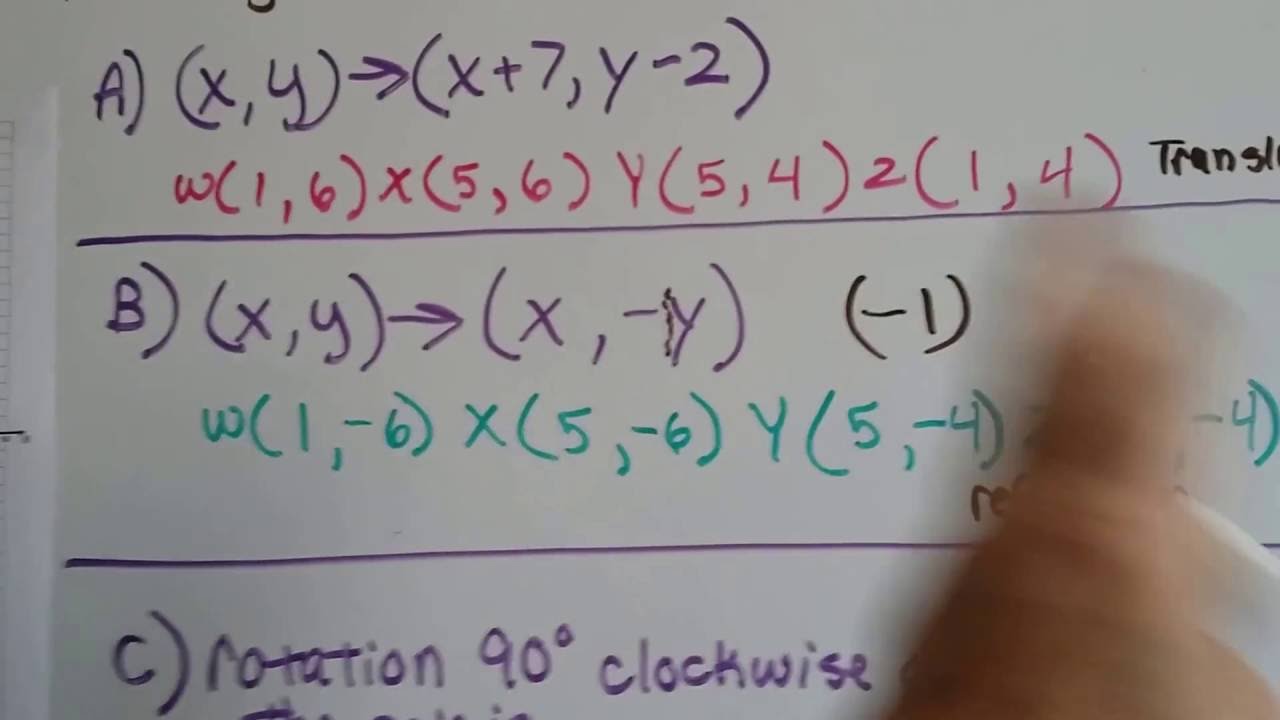 A) (x, y) → (x+7, y-2)
W(1, 6) X(5, 6) Y(5, 4) Z(1, 4) Transl
B) (x, y) → (x, -1y) (-1)
W(1, -6) X(5, -6) Y(5, -4) , -4)
C) rotation 90° clockwise